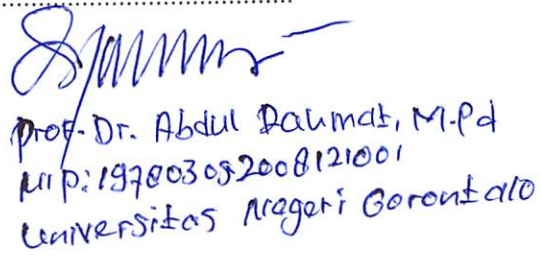 Prof. Dr. Abdul Rahmat, M.Pd
NIP: 197803092008121001
Universitas Negeri Gorontalo